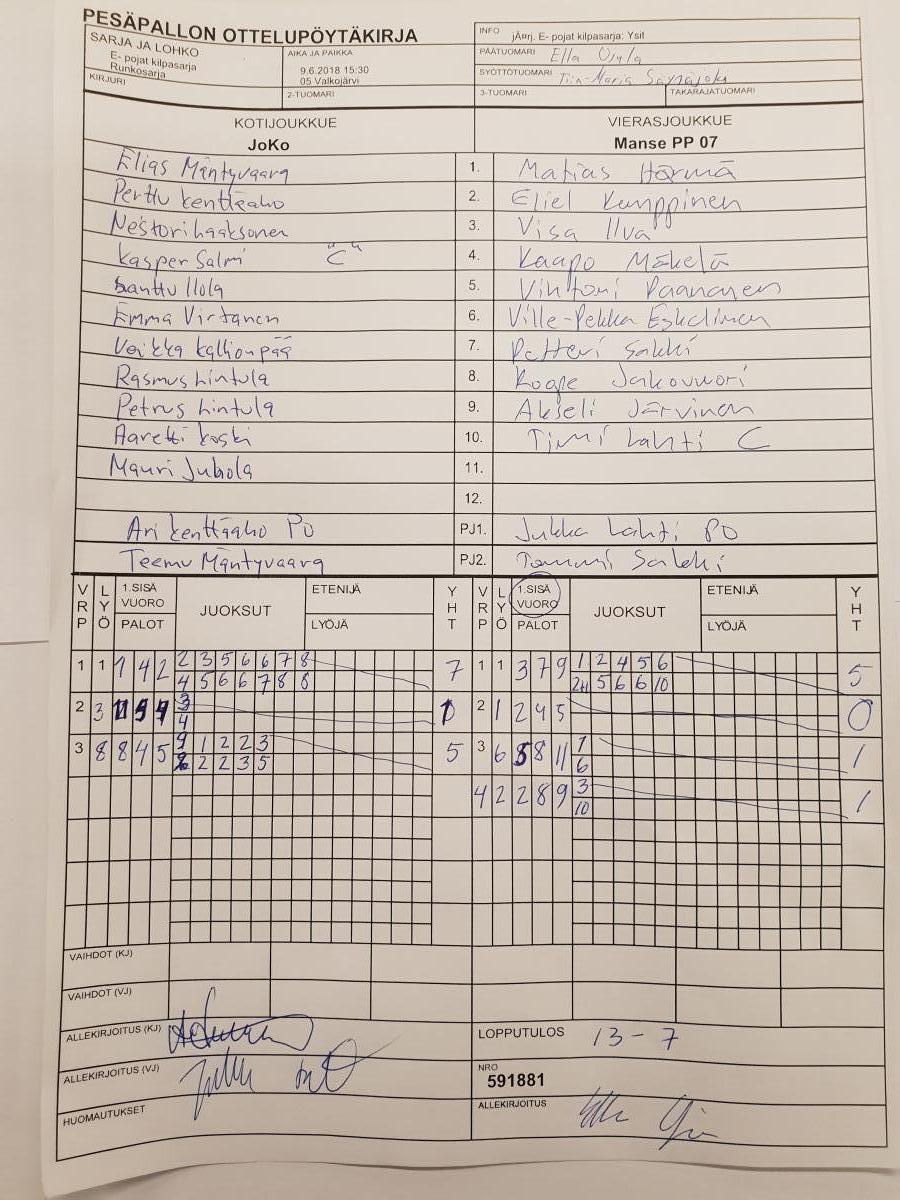 PESÄPALLON OTTELUPÖYTÄKIRJA
SARJA JA LOHKO
E- pojat kilpasarja
Runkosarja
AIKA JA PAIKKA
9.6.2018 15:30
05 Valkojärvi
INFO jÄrrj. E- pojat kilpasarja: Ysit
PÄÄTUOMARI Ella
SYÖTTÖTUOMARI Tiia-Maria
KIRJURI
2-TUOMARI
3-TUOMARI
TAKARAJATUOMARI
KOTIJOUKKUE
JoKo
VIERASJOUKKUE
Manse PP 07
Elias Mäntyvaara 1. Matias Härmä
Perttu Kenttäaho 2. Eliel Kumppinen
Nestori Laaksonen 3. Visa Ilva
Kasper Salmi "C" 4. Kaapo Mäkelä
Santtu Ilola 5. Vihtori Paananen
Emma Virtanen 6. Ville-Pekka Eskelinen
Veikka Kallionpää 7. Petteri Sakki
Rasmus Lintula 8. Roope Jakovuori
Petrus Lintula 9. Akseli Järvinen
Aaretti Koski 10. Timi Lahti C
Mauri Jussola 11.
12.
Ari Kenttäaho PJ1. Jukka Lahti PO
Teemu Mäntyvaara PJ2. Tommi Sakki
VRP LYÖ 1.SISÄ VUORO PALOT JUOKSUT ETENIJÄ LYÖJÄ YHT VRP LYÖ 1.SISÄ VUORO PALOT JUOKSUT ETENIJÄ LYÖJÄ YHT
1 1 1 4 2 2 3 5 6 6 7 8 7 1 1 3 7 9 1 2 4 5 6 5
4 5 6 6 7 8 8 5 6 6 10
2 3 3 2 1 2 4 5 0
4
3 8 8 4 5 9 1 2 2 3 5 3 6 8 11 1
2 2 3 5 6
4 2 2 8 9 3 1
10
VAIHDOT (KJ)
VAIHDOT (VJ)
ALLEKIRJOITUS (KJ)
LOPPUTULOS 13-7
ALLEKIRJOITUS (VJ)
NRO
591881
HUOMAUTUKSET
ALLEKIRJOITUS